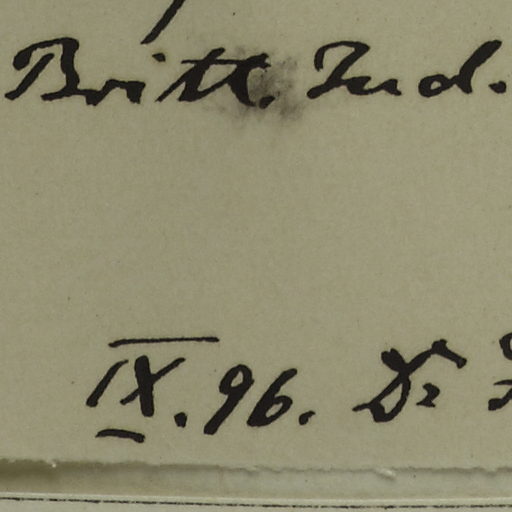 Britt. Ind.
IX. 96. Dr